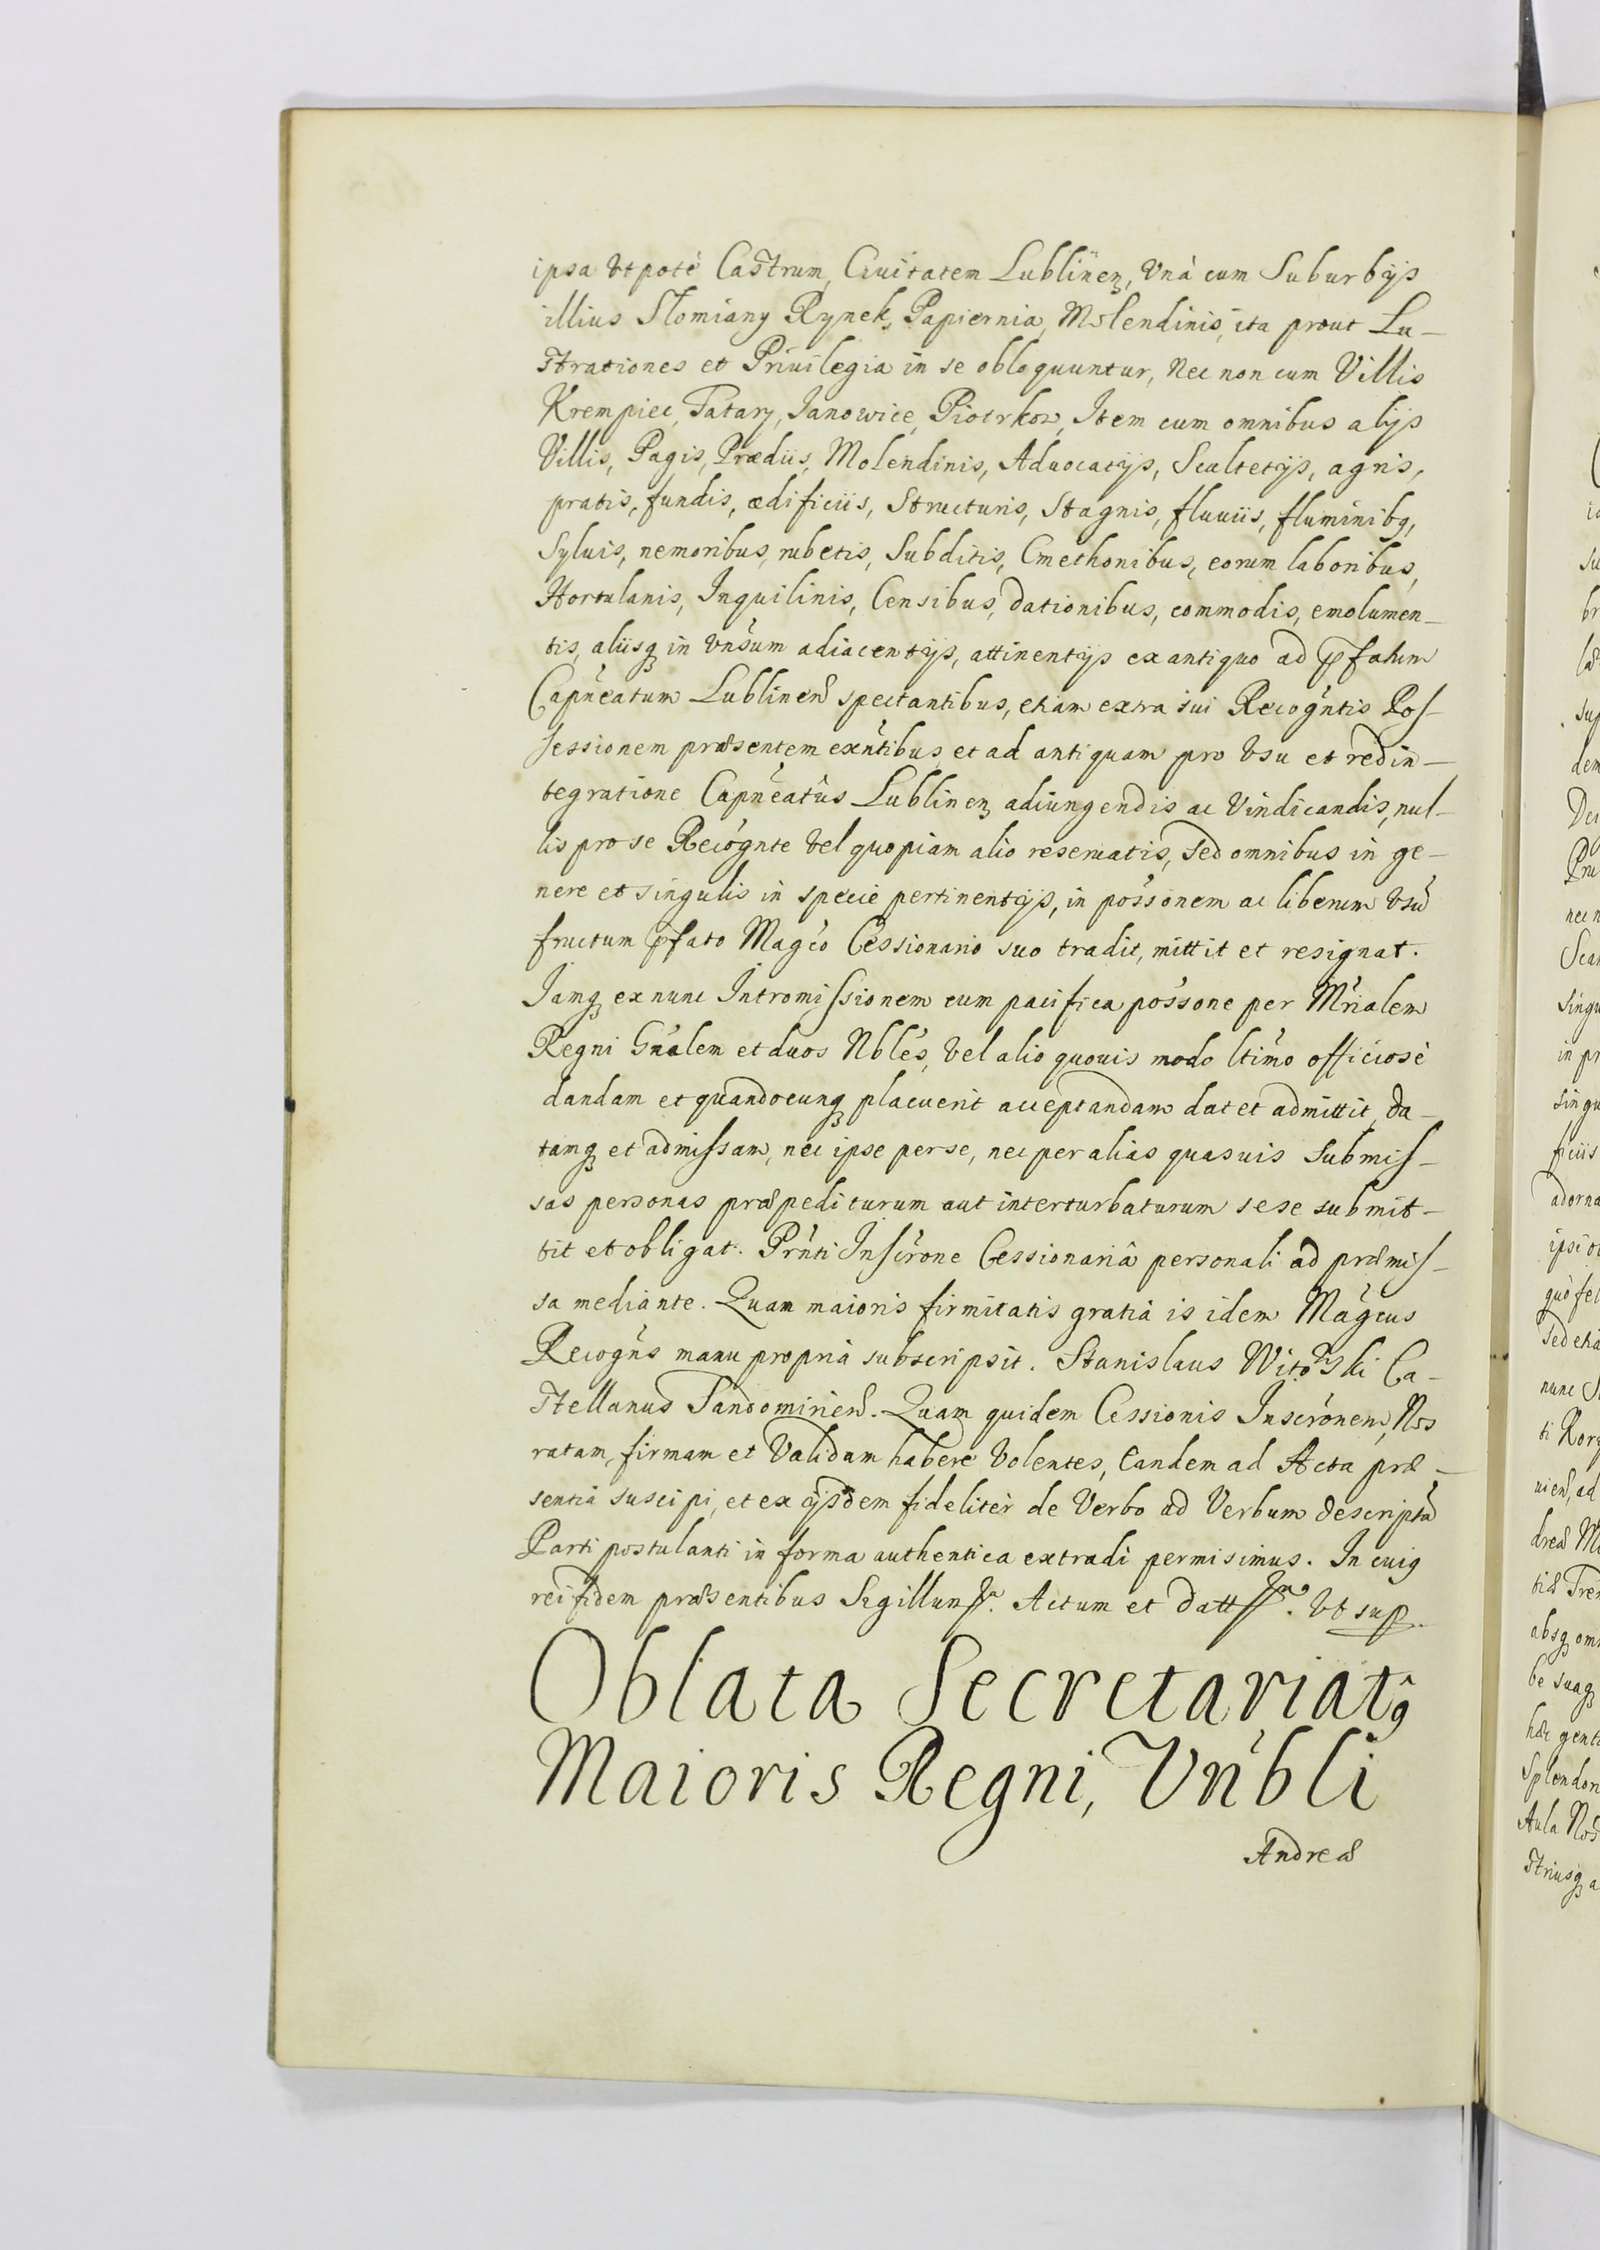 ipsa Vt poté Castrum, Ciuitatem Lublinen, Vnà cum Suburbijs
illius Słomiany Rynek, Papiernia, Molendinis, ita prout Lu-
strationes et Priuilegia in se obloquuntur, Nec non cum Villis
Krempiec, Tatary, Janowice, Piotrkow, Item cum omnibus alijs
Villis, Pagis, Prædiis, Molendinis, Aduocatijs, Scultetijs, agris,
pratis, fundis, ædificiis, Structuris, Stagnis, fluuiis, fluminibq,
Syluis, nemoribus, rubetis, Subditis, Cmethonibus, eorum laboribus,
Hortulanis, Inquilinis, Censibus, Dationibus, commodis, emolumen-
tis, aliisq in Vnsum adiacentijs, attinentijs ex antiquo ad pfatum
Capneatum Lublinen spectantibus, etiam extra sui Recogntis Pos-
sessionem præsentem exntibus et ad antiquam pro Vsu et redin-
tegratione Capneatûs Lublinen adiungendis ac Vindicandis, nul-
lis pro se Recognte Vel quopiam alio reseruatis, sed omnibus in ge-
nere et singulis in specie pertinentijs, in possonem ac liberum Vsu
fructum pfato Magco Cessionario suo tradit, mittit et resignat.
Jamq ex nunc Intromissionem cum pacifica possone per Mrialem
Regni Gnalem et duos Nbles, Vel alio quouis modo ltimo officiosè
dandam et quandocunq placuerit acceptandam dat et admittit, da-
tamq et admissam, nec ipse per se, nec per alias quasuis Submis-
sas personas præpediturum aut interturbaturum sese submit-
tit et obligat. Prnti Inscrone Cessionariâ personali ad præmis-
sa mediante. Quam maioris firmitatis gratià is idem Magcus
Recogns manu proprià subscripsit. Stanislaus Witowski Ca-
stellanus Sandomirien. Quam quidem Cessionis Inscronem, Nos
ratam, firmam et Validam habere Volentes, Eandem ad Acta præ-
sentia suscipi, et ex ijsdem fideliter de Verbo ad Verbum descripta
Parti postulanti in forma authentica extradi permisimus. In cuiq
rei fidem præsentibus Sigillum. Actum et Datt. Vt sup.
Oblata Secretariatq
Maioris Regni, Vnbli
Andreæ